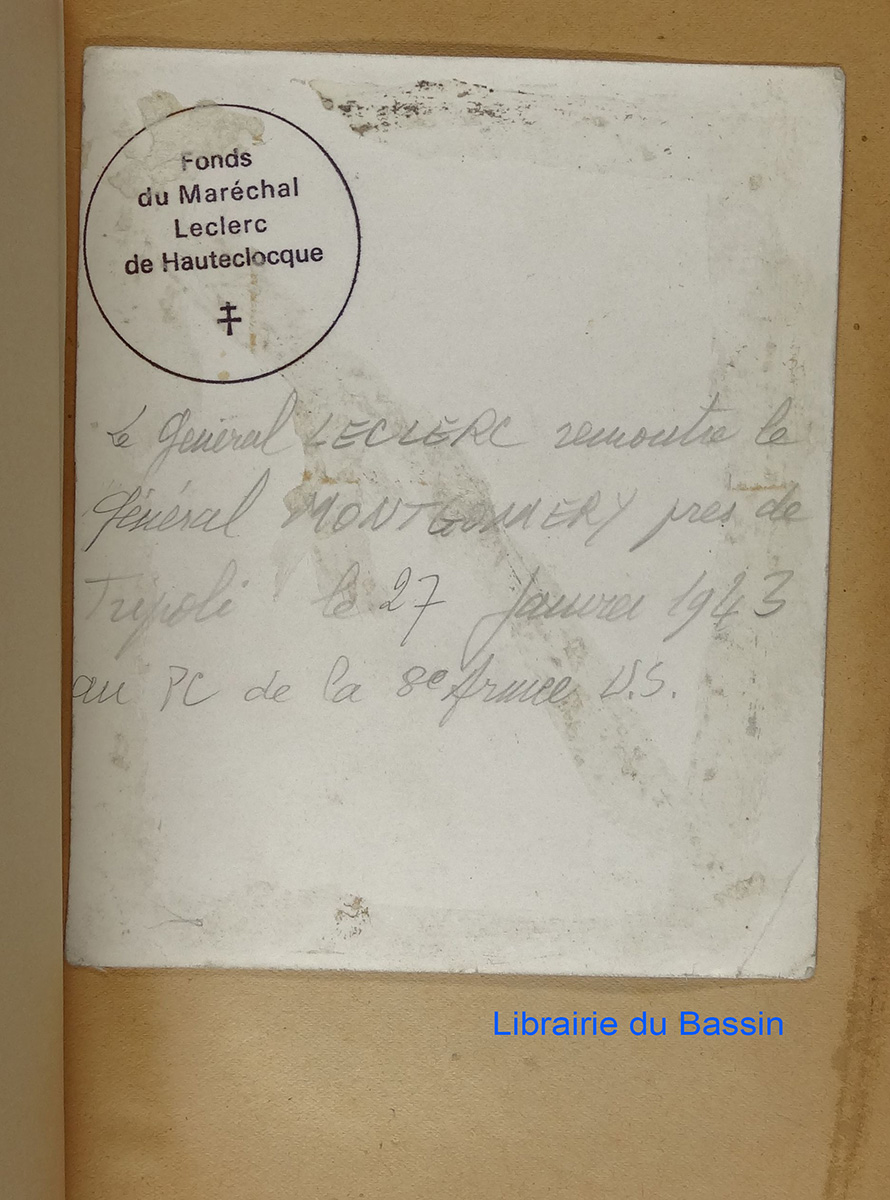 Fonds
du Maréchal
Leclerc
de Hauteclocque
Le Général LECLERC remontre le
Général MONTGOMMERY près de
Tripoli le 27 Janvier 1943
au PC de la 8e Armée U.S.
Librairie du Bassin